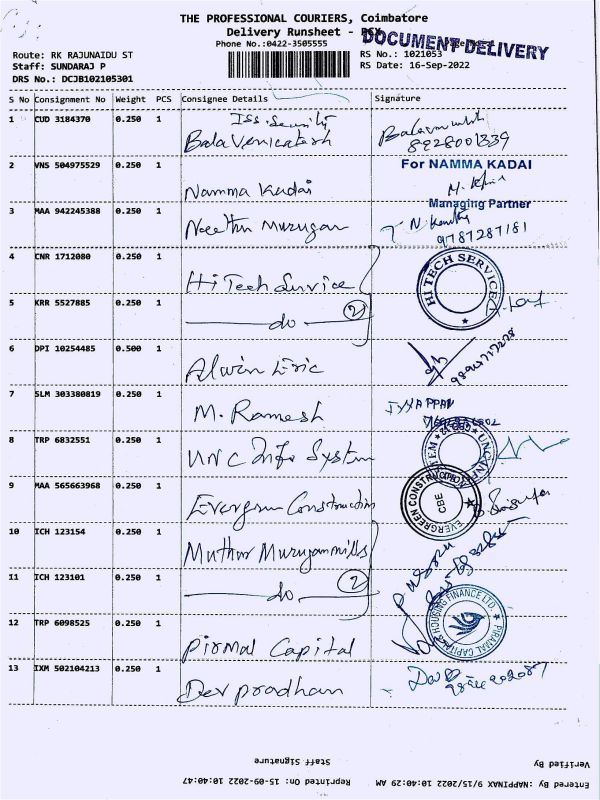 THE PROFESSIONAL COURIERS, Coimbatore
Delivery Runsheet -
DOCUMENT DELIVERY
Phone No.:0422-3505555
Route: RK RAJUNAIDU ST
RS No.: 1021053
Staff: SUNDARAJ P
RS Date: 16-Sep-2022
DRS No.: DCJB102105301
S No Consignment No Weight PCS Consignee Details Signature
1 CUD 3184370 0.250 1
Bala Venkatesh
2 VNS 504975529 0.250 1 For NAMMA KADAI
Namma Kadai
Managing Partner
3 MAA 942245388 0.250 1 Neethu Murugan
9787287181
4 CNR 1712080 0.250 1
Hi Tech Service HI TECH SERVICE
5 KRR 5527885 0.250 1 do 2
6 DPI 10254485 0.500 1
Alwin Eric
7 SLM 303380819 0.250 1
M. Ramesh IYYAPPAN
8 TRP 6832551 0.250 1
UNC Info System
9 MAA 565663968 0.250 1
Evergreen Construction EVERGREEN CONSTRUCTION CBE
10 ICH 123154 0.250 1
Muthur Murugan mills
11 ICH 123101 0.250 1 do 2
12 TRP 6098525 0.250 1
Pirmal Capital PIRAMAL CAPITAL HOUSING FINANCE LTD.
13 IXM 502104213 0.250 1
Dev pradhan
Staff Signature Verified By
Reprinted On: 15-09-2022 10:40:47 Entered By :NAPPINAX 9/15/2022 10:40:29 AM